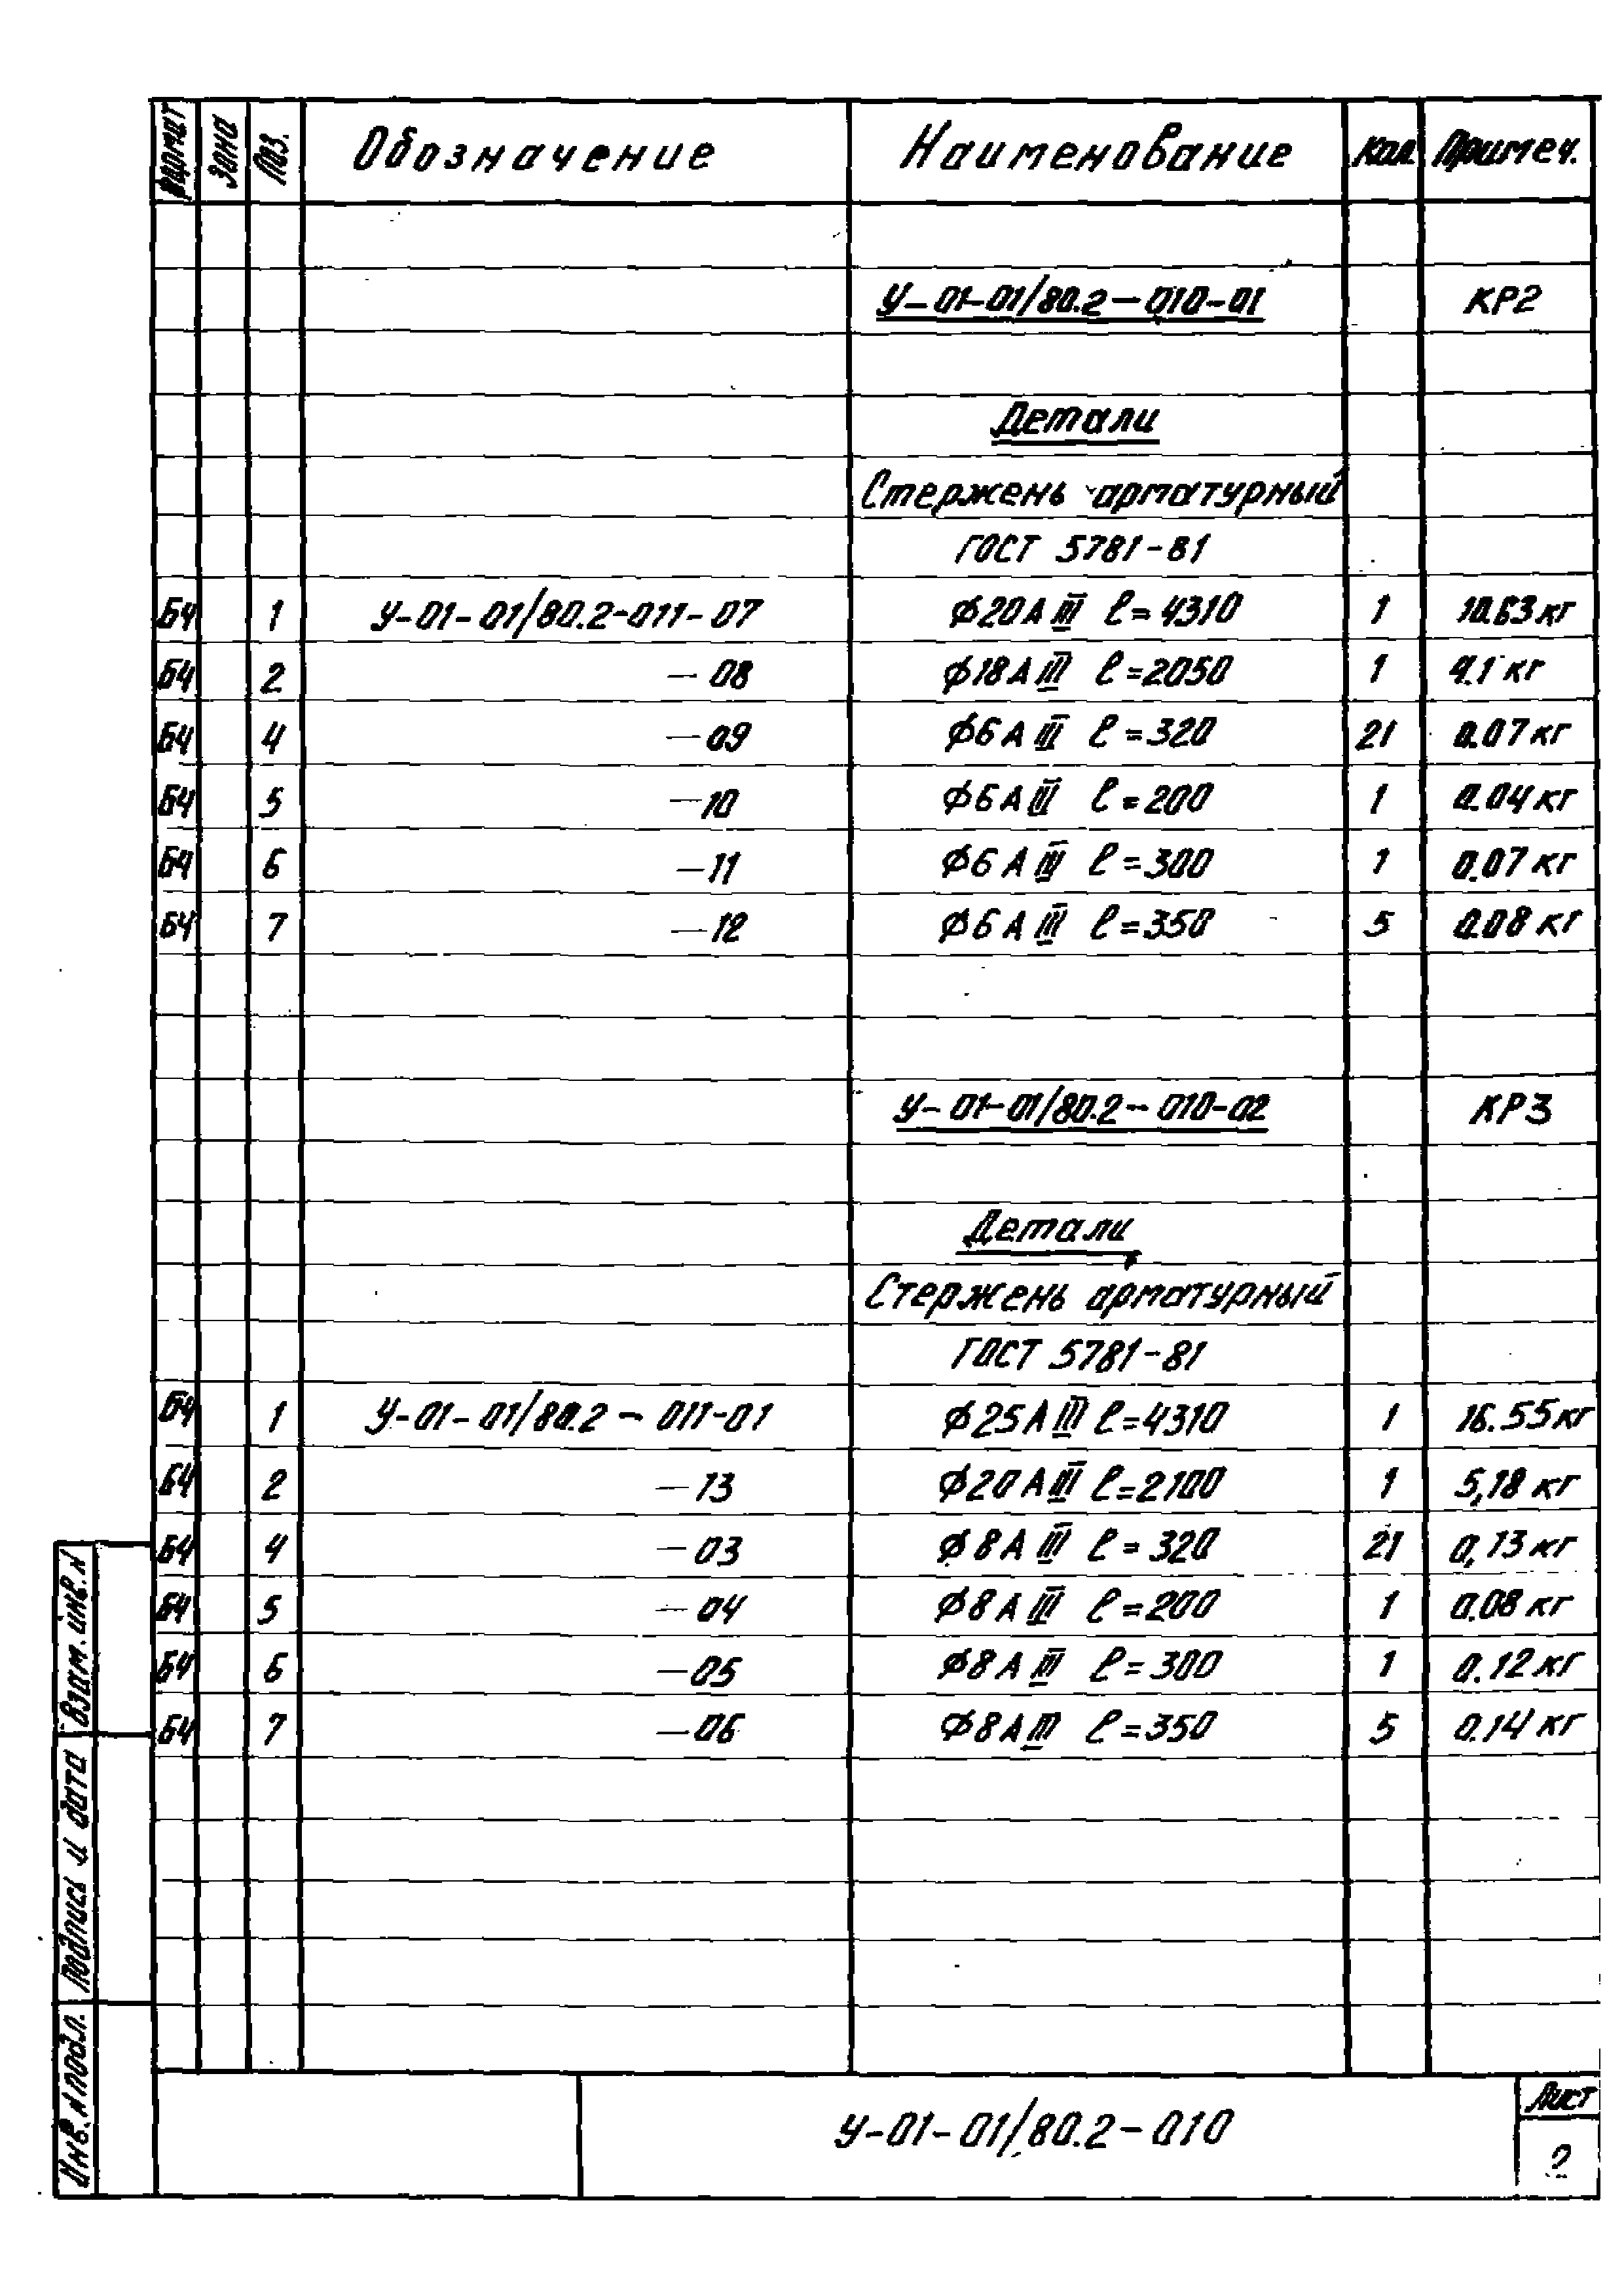 Формат Зона Поз. Обозначение Наименование Кол Примеч.
У-01-01/80.2-010-01 КР2
Детали
Стержень арматурный
ГОСТ 5781-81
БЧ 1 У-01-01/80.2-011-07 ϕ20АIII ℓ=4310 1 10.63кг
БЧ 2 -08 ϕ18АIII ℓ=2050 1 4.1кг
БЧ 4 -09 ϕ6АIII ℓ=320 21 0.07кг
БЧ 5 -10 ϕ6АIII ℓ=200 1 0.04кг
БЧ 6 -11 ϕ6АIII ℓ=300 1 0.07кг
БЧ 7 -12 ϕ6АIII ℓ=350 5 0.08кг
У-01-01/80.2-010-02 КР3
Детали
Стержень арматурный
ГОСТ 5781-81
БЧ 1 У-01-01/80.2-011-01 ϕ25АIII ℓ=4310 1 16.55кг
БЧ 2 -13 ϕ20АIII ℓ=2100 1 5,18кг
БЧ 4 -03 ϕ8АIII ℓ=320 21 0,13кг
БЧ 5 -04 ϕ8АIII ℓ=200 1 0.08кг
БЧ 6 -05 ϕ8АIII ℓ=300 1 0.12кг
БЧ 7 -06 ϕ8АIII ℓ=350 5 0.14кг
Взам. инв. N
Подпись и дата
Инв. N подл.
У-01-01/80.2-010
Лист
2